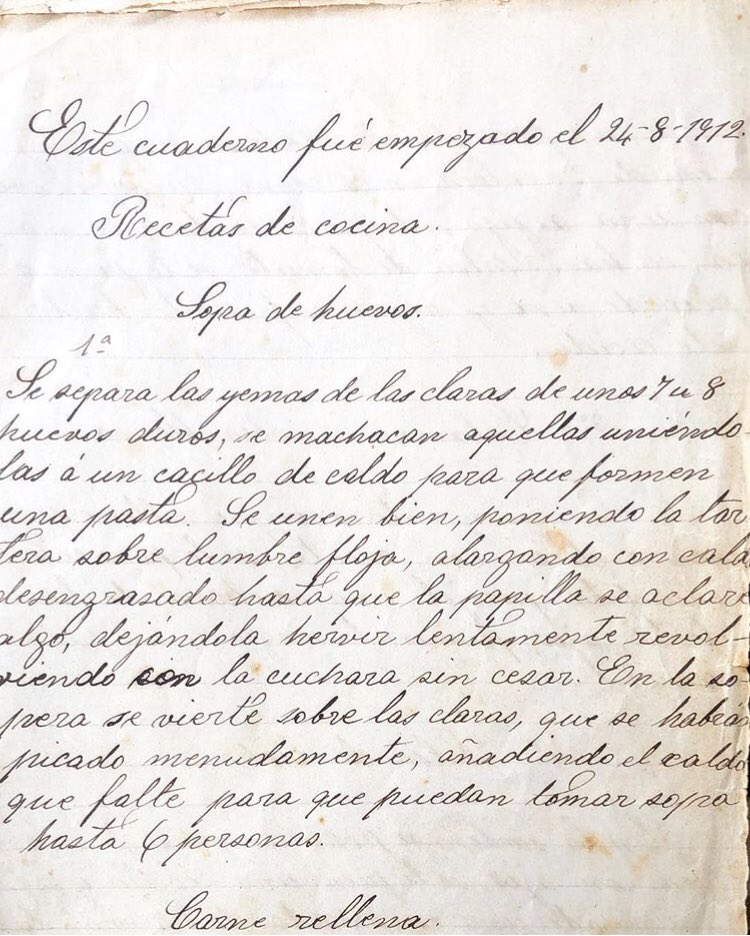 Este cuaderno fué empezado el 24-8-1912.
Recetas de cocina.
Sopa de huevos.
1ª
Se separa las yemas de las claras de unos 7 u 8
huevos duros, se machacan aquellas uniéndo-
las á un cacillo de caldo para que formen
una pasta. Se unen bien, poniendo la tar
tera sobre lumbre floja, alargando con
desengrasado hasta que la papilla se aclare
algo, dejándola hervir lentamente revol-
viendo con la cuchara sin cesar. En la so-
pera se vierte sobre las claras, que se habrán
picado menudamente, añadiendo el caldo
que falte para que puedan tomar sopa
hasta 6 personas.
Carne rellena.